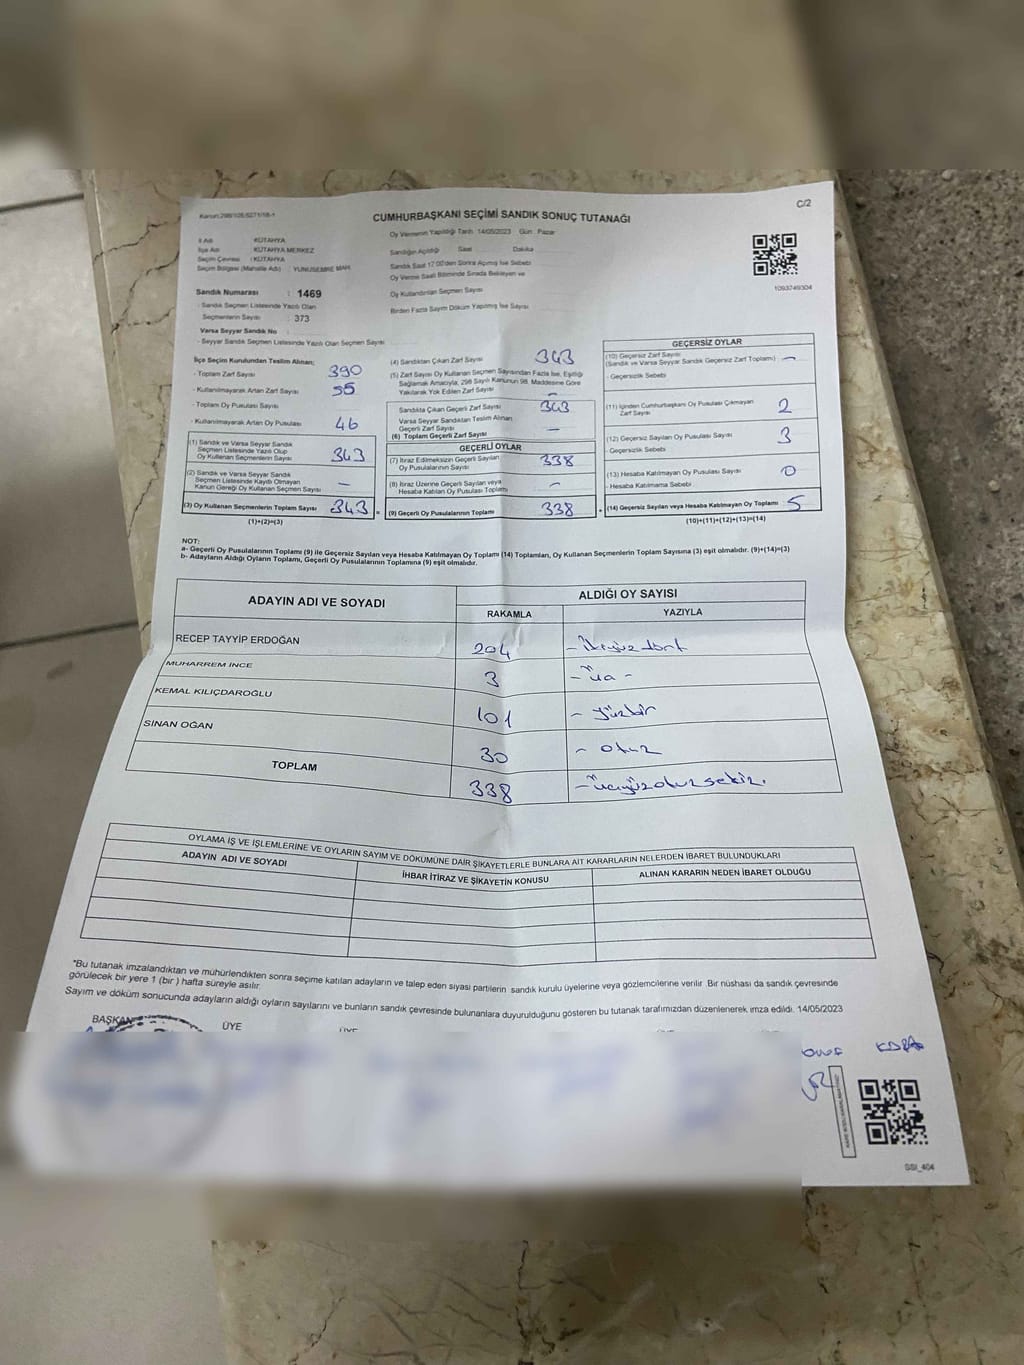 Kanun:298/105,6271/18-1
CUMHURBAŞKANI SEÇİMİ SANDIK SONUÇ TUTANAĞI
C/2
Oy Vermenin Yapıldığı Tarih 14/05/2023 Gün Pazar
İl Adı : KÜTAHYA
İlçe Adı : KÜTAHYA MERKEZ
Seçim Çevresi : KÜTAHYA
Seçim Bölgesi (Mahalle Adı) : YUNUSEMRE MAH.
Sandığın Açıldığı Saat Dakika
Sandık Saat 17:00'den Sonra Açılmış İse Sebebi
Oy Verme Saati Bitiminde Sırada Bekleyen ve
Oy Kullandırılan Seçmen Sayısı
Birden Fazla Sayım Döküm Yapılmış İse Sayısı
1093749304
Sandık Numarası : 1469
- Sandık Seçmen Listesinde Yazılı Olan
Seçmenlerin Sayısı : 373
Varsa Seyyar Sandık No :
- Seyyar Sandık Seçmen Listesinde Yazılı Olan Seçmen Sayısı
İlçe Seçim Kurulundan Teslim Alınan;
- Toplam Zarf Sayısı 390
- Kullanılmayarak Artan Zarf Sayısı 55
- Toplam Oy Pusulası Sayısı
- Kullanılmayarak Artan Oy Pusulası 46
(1) Sandık ve Varsa Seyyar Sandık
Seçmen Listesinde Yazılı Olup
Oy Kullanan Seçmenlerin Sayısı 343
(2) Sandık ve Varsa Seyyar Sandık
Seçmen Listesinde Kayıtlı Olmayan
Kanun Gereği Oy Kullanan Seçmen Sayısı —
(3) Oy Kullanan Seçmenlerin Toplam Sayısı 343 =
(1)+(2)=(3)
(4) Sandıktan Çıkan Zarf Sayısı 343
(5) Zarf Sayısı Oy Kullanan Seçmen Sayısından Fazla İse, Eşitliği
Sağlamak Amacıyla, 298 Sayılı Kanunun 98. Maddesine Göre
Yakılarak Yok Edilen Zarf Sayısı —
Sandıkta Çıkan Geçerli Zarf Sayısı 343
Varsa Seyyar Sandıktan Teslim Alınan
Geçerli Zarf Sayısı —
(6) Toplam Geçerli Zarf Sayısı
GEÇERLİ OYLAR
(7) İtiraz Edilmeksizin Geçerli Sayılan
Oy Pusulalarının Sayısı 338
(8) İtiraz Üzerine Geçerli Sayılan veya
Hesaba Katılan Oy Pusulası Toplamı —
(9) Geçerli Oy Pusulalarının Toplamı 338 +
GEÇERSİZ OYLAR
(10) Geçersiz Zarf Sayısı
(Sandık ve Varsa Seyyar Sandık Geçersiz Zarf Toplamı) —
- Geçersizlik Sebebi
(11) İçinden Cumhurbaşkanı Oy Pusulası Çıkmayan
Zarf Sayısı 2
(12) Geçersiz Sayılan Oy Pusulası Sayısı 3
- Geçersizlik Sebebi
(13) Hesaba Katılmayan Oy Pusulası Sayısı 0
- Hesaba Katılmama Sebebi
(14) Geçersiz Sayılan veya Hesaba Katılmayan Oy Toplamı 5
(10)+(11)+(12)+(13)=(14)
NOT:
a- Geçerli Oy Pusulalarının Toplamı (9) ile Geçersiz Sayılan veya Hesaba Katılmayan Oy Toplamı (14) Toplamları, Oy Kullanan Seçmenlerin Toplam Sayısına (3) eşit olmalıdır. (9)+(14)=(3)
b- Adayların Aldığı Oyların Toplamı, Geçerli Oy Pusulalarının Toplamına (9) eşit olmalıdır.
ADAYIN ADI VE SOYADI
ALDIĞI OY SAYISI
RAKAMLA YAZIYLA
RECEP TAYYİP ERDOĞAN 204 - ikiyüz dört
MUHARREM İNCE 3 - Üç -
KEMAL KILIÇDAROĞLU 101 - yüzbir
SİNAN OĞAN 30 - otuz
TOPLAM 338 - Üçyüzotuzsekiz.
OYLAMA İŞ VE İŞLEMLERİNE VE OYLARIN SAYIM VE DÖKÜMÜNE DAİR ŞİKAYETLERLE BUNLARA AİT KARARLARIN NELERDEN İBARET BULUNDUKLARI
ADAYIN ADI VE SOYADI İHBAR İTİRAZ VE ŞİKAYETİN KONUSU ALINAN KARARIN NEDEN İBARET OLDUĞU
*Bu tutanak imzalandıktan ve mühürlendikten sonra seçime katılan adayların ve talep eden siyasi partilerin sandık kurulu üyelerine veya gözlemcilerine verilir. Bir nüshası da sandık çevresinde
görülecek bir yere 1 (bir) hafta süreyle asılır.
Sayım ve döküm sonucunda adayların aldığı oyların sayılarını ve bunların sandık çevresinde bulunanlara duyurulduğunu gösteren bu tutanak tarafımızdan düzenlenerek imza edildi. 14/05/2023
BAŞKAN ÜYE ÜYE
GSI_404